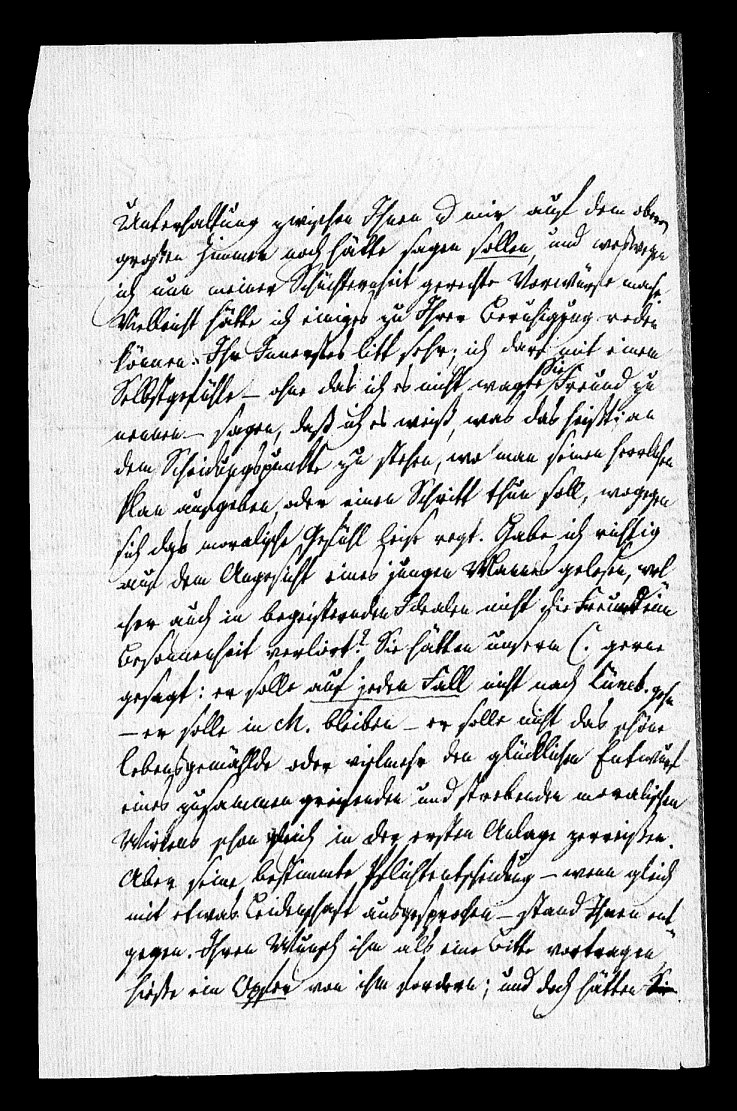 Unterhaltung zwischen Ihnen u mir auf dem obern
großen Zimmer noch hätte sagen sollen, und weßwegen
ich nun meiner Schüchternheit gerechte Vorwürfe mache.
Vielleicht hätte ich einiges zu Ihrer Beruhigung reden
können. Ihr Innerstes litt sehr; ich darf mit einem
Selbstgefühle – ohne das ich es nicht wagte, Sie Freund zu
nennen – sagen, daß ich es weiß, was das heißt: an
dem Scheidungspunkte zu stehen, wo man seinen herrlichen
Plan aufgeben, oder einen Schritt thun soll, wogegen
sich das moralische Gefühl leise regt. Habe ich richtig
auf dem Angesicht eines jungen Mannes gelesen, wel
cher auch in begeisternden Idealen nicht die Freundinn
Besonnenheit verliert? Sie hätten unserm C. gerne
gesagt: er solle auf jeden Fall nicht nach Lüneb. gehn
– er solle in M. bleiben – er solle nicht das schöne
Lebensgemählde oder vielmehr den glücklichen Entwurf
eines zusammen greifenden und strebenden moralischen
Wirkens schon gleich in der ersten Anlage zerreißen.
Aber seine bestimmte Pflichtentscheidung – wenn gleich
mit etwas Leidenschaft ausgesprochen – stand Ihnen ent
gegen. Ihren Wunsch ihm als eine Bitte vortragen,
hieße ein Opfer von ihm fordern; und doch hätten Sie